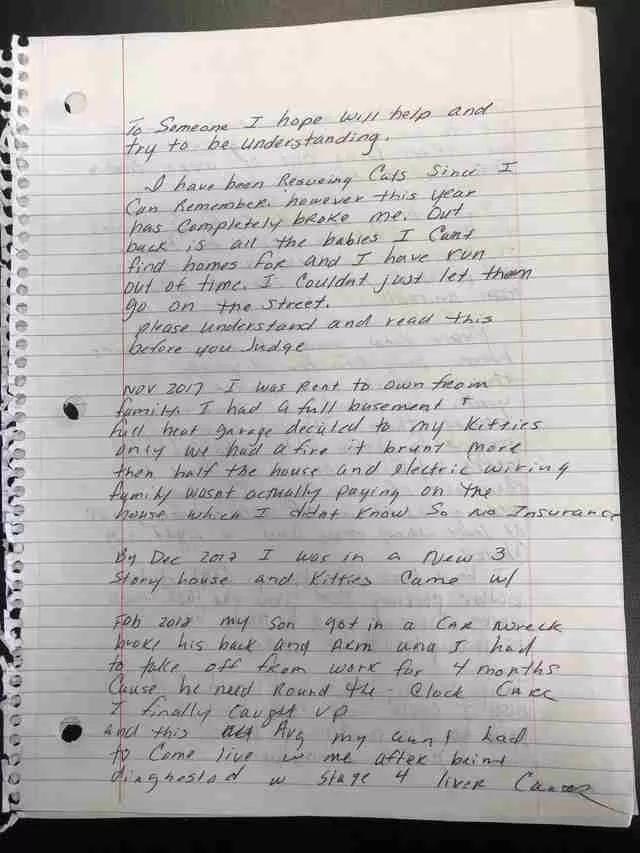 To Someone I hope will help and
try to be understanding.
I have been Rescueing Cats Since I
Can Remember. however this year
has Completely broke me. Out
back is all the babies I Cant
find homes for and I have run
out of time. I Couldnt just let them
go on the street.
please understand and read this
before you Judge
NOV 2017 I was Rent to own from
family. I had a full basement +
full heat garage decided to my Kitties
only we had a fire it brunt more
then half the house and electric wiring
family wasnt actually paying on the
house which I didnt know So No Insurance
By Dec 2017 I was in a New 3
Story house and Kitties Came w/
Feb 2018 my Son got in a CAR wreck
broke his back and ARM and I had
to take off from work for 4 months
Cause he need Round the - Clock CARE
I finally Caught up
and this Aug my aunt had
to Come live w me after being
diaghestod w Stage 4 liver Cancer